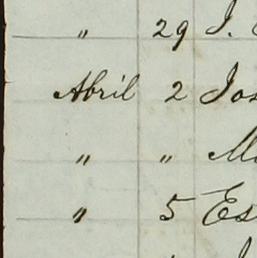 " 29 J.
Abril 2 Jos
" " Ma
" 5 Es